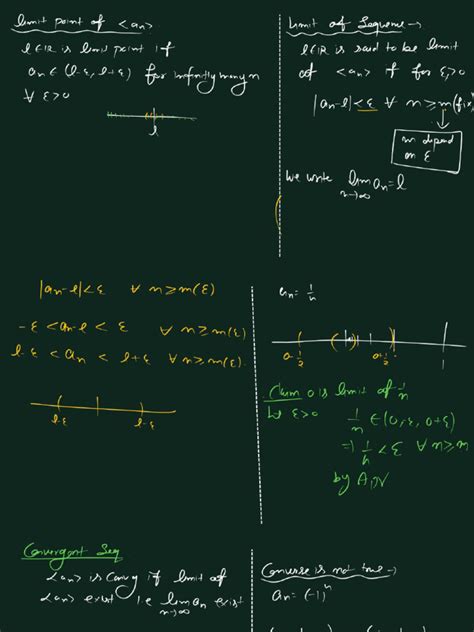 limit point of <an>
l∈IR is limit point if
an ∈ (l-ε, l+ε) for infinitly many n
∀ ε>0
l
limit of Sequence →
l∈IR is said to be limit
of <an> if for ε>0
|an-l|<ε ∀ n≥m(fix)
m depend
on ε
we write lim an = l
n→∞
|an-l|<ε ∀ n≥m(ε)
-ε<an-l<ε ∀ n≥m(ε)
l-ε<an<l+ε ∀ n≥m(ε)
l-ε l-ε
an = 1/n
1
Claim 0 is limit of 1/n
let ε>0 1/n ∈ (0-ε, 0+ε)
1/n < ε ∀ n≥m
by A.P
Convergent Seq
<an> is Convg if limit of
<an> exist i.e lim an exist
n→∞
Converse is not true →
an = (-1)^n